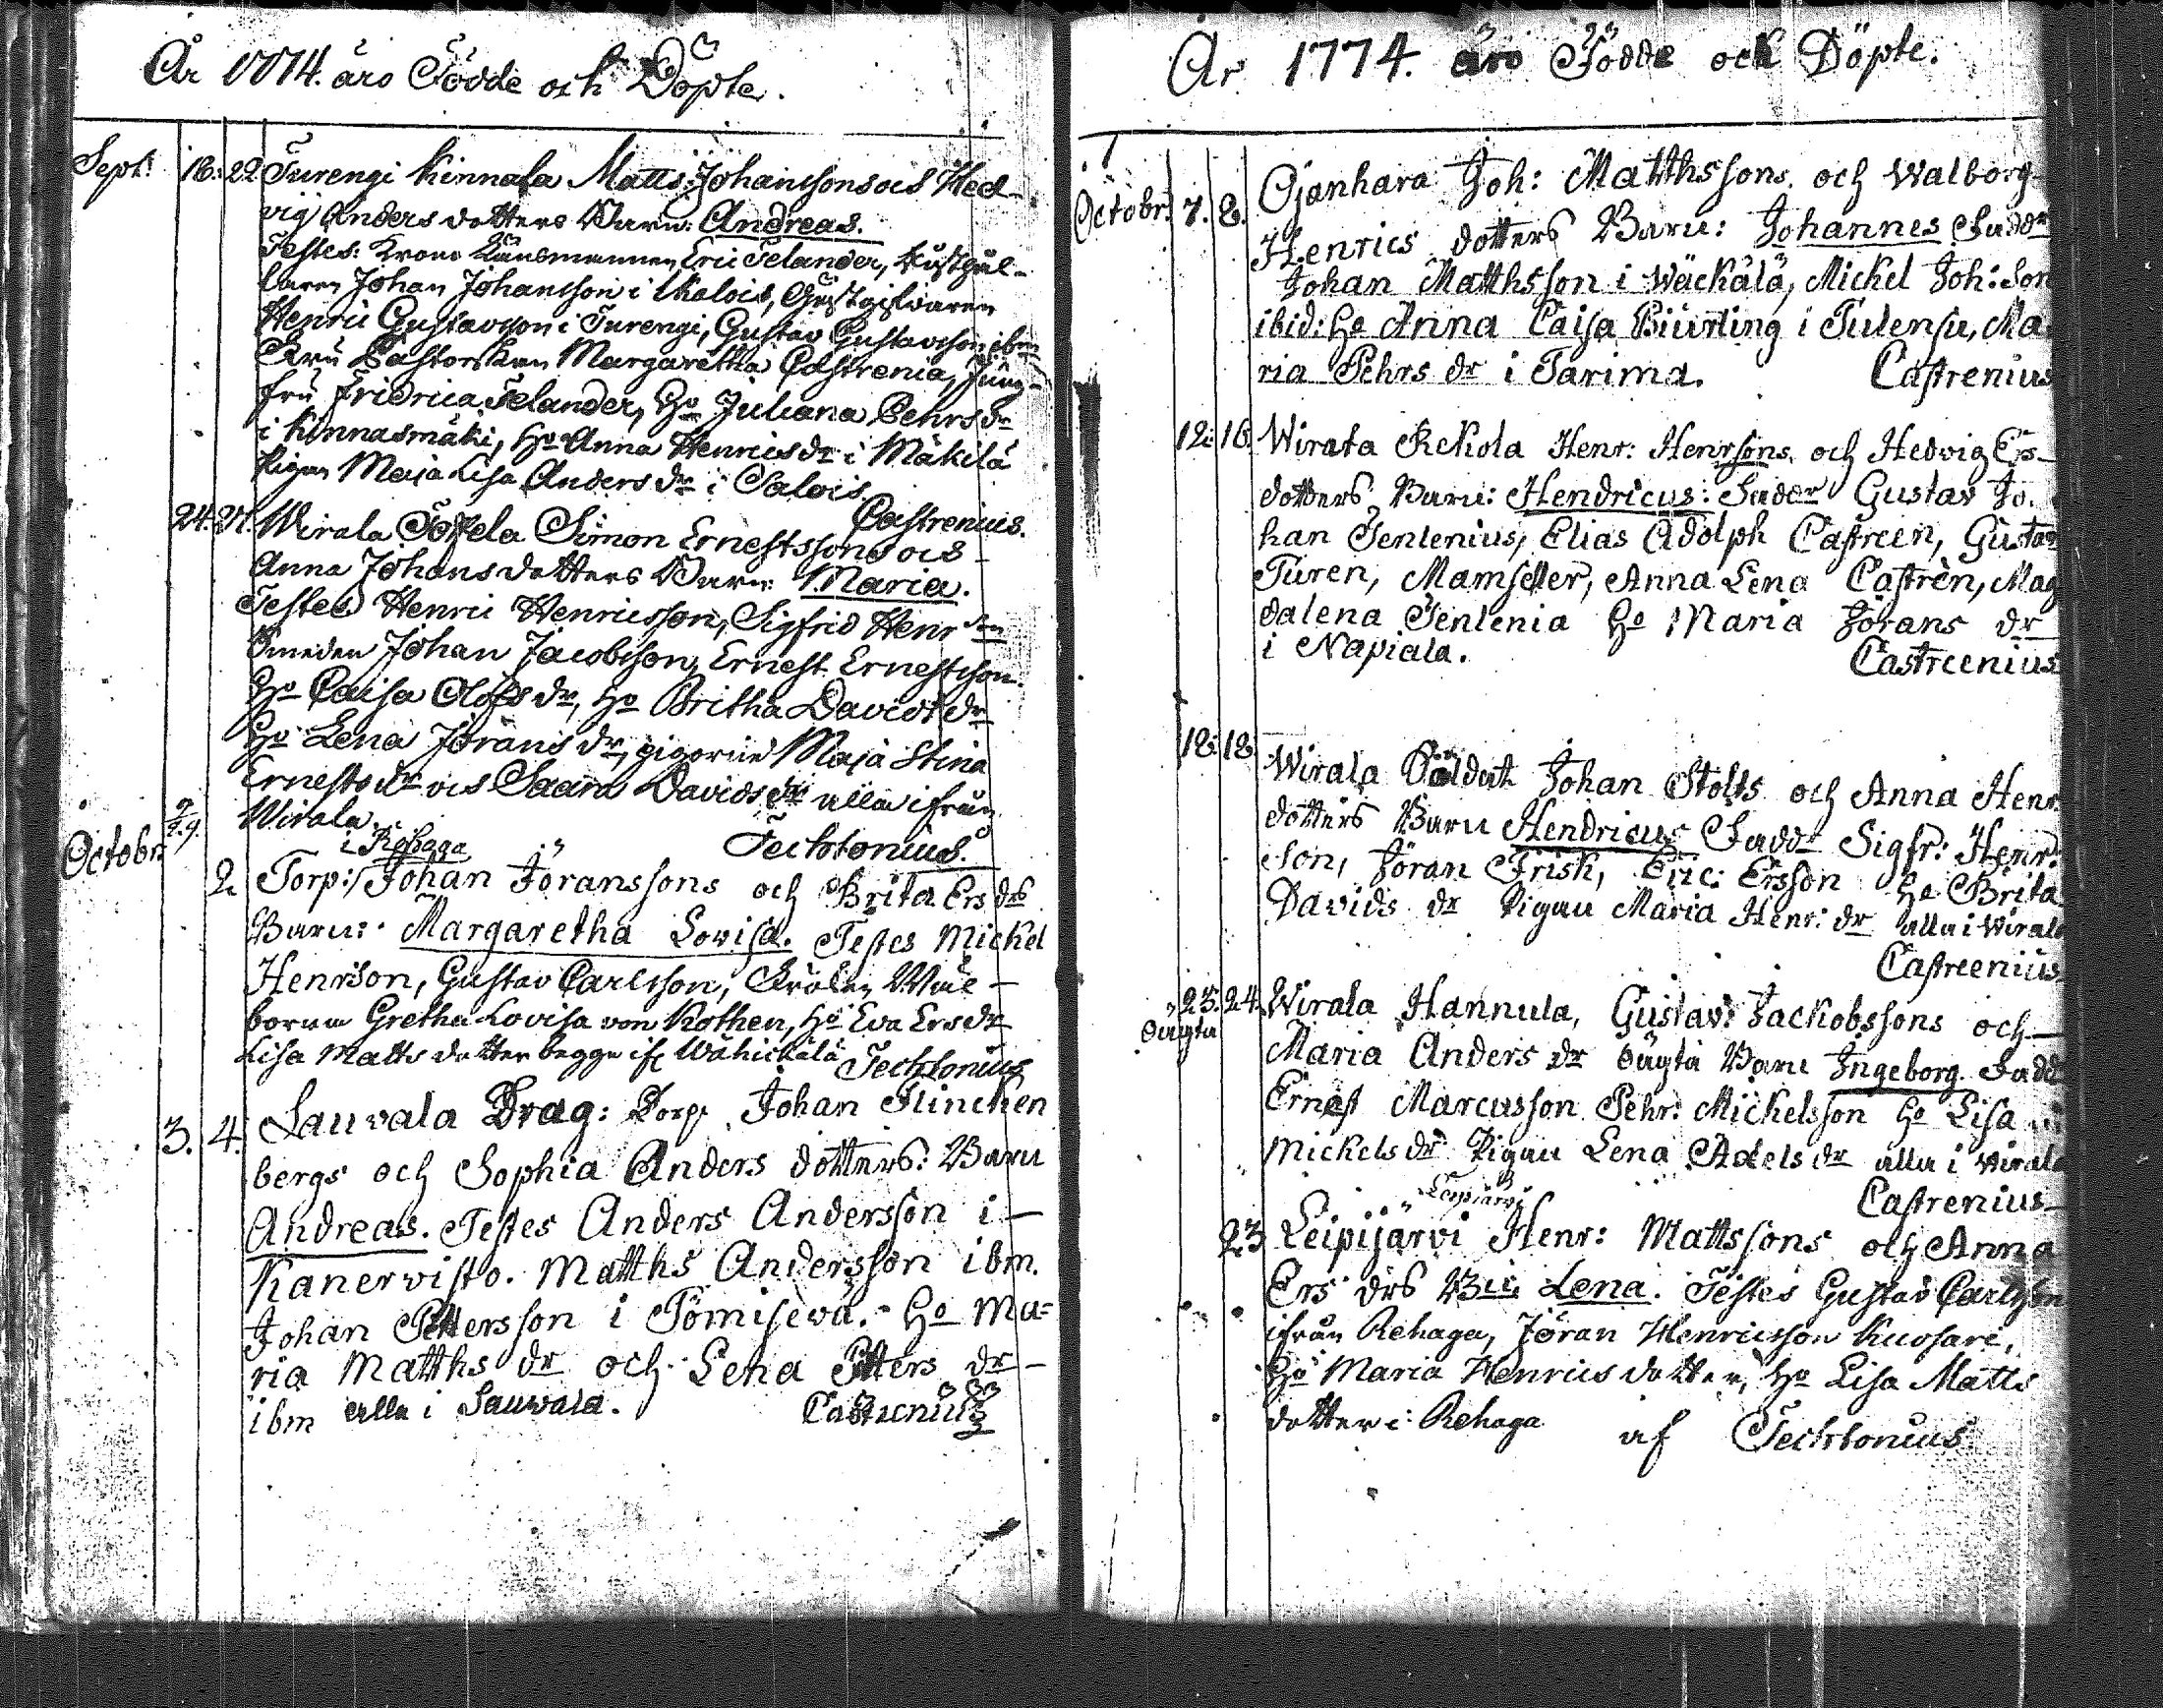 År 1774. äro Födde och Döpte.
Sept: 18. 22 Turengi Kinnala Matts Johanssons och Hed-
vig Anders dotters Barn: Andreas.
Testes: Krono Länsmannen Eric Telander,
Johan Johansson i Uskelois, Gästgifvaren
Henric Gustavsson i Turengi, Gustav Gustavsson ibm
Fru Pastorskan Margaretha Castrenia, Jung-
fru Fridrica Telander, Ho Juliana Pehrs dr
i Kinnasmäki, Ho Anna Henrics dr i Mäkilä
Pigan Maja Lisa Anders dr i Salois
Castrenius.
24. 27. Wirala Simon Ernestssons och
Anna Johans dotters Barn: Maria.
Testes Henric Henricsson, Sigfrid Henr son
Smeden Johan Jacobsson, Ernest Ernestsson.
Ho Caisa Olofs dr, Ho Britha Davids dr
Ho Lena Jörans dr, pigorne Maja Stina
Ernests dr och Saara Davids dr alla ifrån
Wirala.
Tecktonius.
i Rehaga
Octobr. 2 Torp: Johan Jöranssons och Brita Ers drs
Barn: Margaretha Lovisa. Testes Mickel
Henrson, Gustav Carlsson, Frölen Wäl-
borna Gretha Lovisa von Kothen, Ho Eva Ers dr
Lisa Matts dotter begge ifr Wähickälä Tecktonius
3. 4. Sauvala Drag: Torp. Johan Flincken
bergs och Sophia Anders dotters: Barn
Andreas. Testes Anders Andersson i
Kanervisto. Matths Andersson ibm.
Johan Pettersson i Tömisevä. Ho Ma=
ria Matths dr och Lena Petters dr
ibm alla i Sauwala. Castrenius
År 1774. äro Födde ock Döpte.
Octobr. 7. 8. Ojanhara Joh: Matthssons och Walborg
Henrics dotters Barn: Johannes Faddr
Johan Matthsson i Wäckälä, Mickel Joh: Son
ibid: Ho Anna Caisa Biurling i Tulensu, Ma
ria Pehrs dr i Tarima. Castrenius
12: 16 Wirala Rekola Henr: Henrsons och Hedvig Ers
dotters Barn: Hendricus: Fadder Gustav Jo.
han Jenlenius, Elias Adolph Castreen, Gustav
Turen, Mamseller, Anna Lena Castrèn, Mag
dalena Jenlenia Ho Maria Jörans dr
i Napiala. Castreenius
18: 18 Wirala Soldat Johan Stolts och Anna Henr.
dotters Barn Hendricus Faddr Sigfr: Henr:
son, Jöran Frisk, Eric: Ersson Ho Brita
Davids dr Pigan Maria Henr: dr alla i Wirala
Castreenius
23. 24. Wirala Hannula, Gustav: Jackobssons och
oägta
Maria Anders dr oägta Barn Ingeborg Fadd
Ernest Marcusson Pehr: Mickelsson Ho Lisa
Mickels dr Pigan Lena Axels dr alla i Wirala
Castrenius
23 Leipijärvi Henr: Mattssons och Anna
Ers drs Bn: Lena. Testes Gustav Carlsson
ifrån Rehaga, Jöran Henricsson Kuosari,
Ho Maria Henrics dotter, Ho Lisa Matts
dotter i Rehaga
af Tecktonius